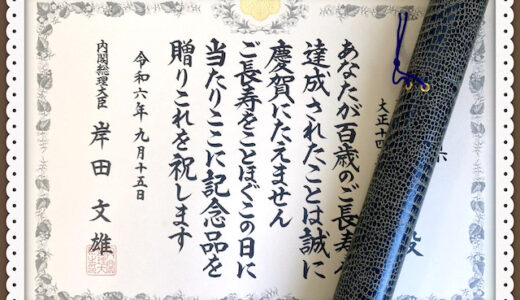 殿
大正十四
あなたが百歳のご長寿を
達成されたことは誠に
慶賀にたえません
ご長寿をことほぐこの日に
当たりここに記念品を
贈りこれを祝します
令和六年九月十五日
内閣総理大臣 岸田文雄